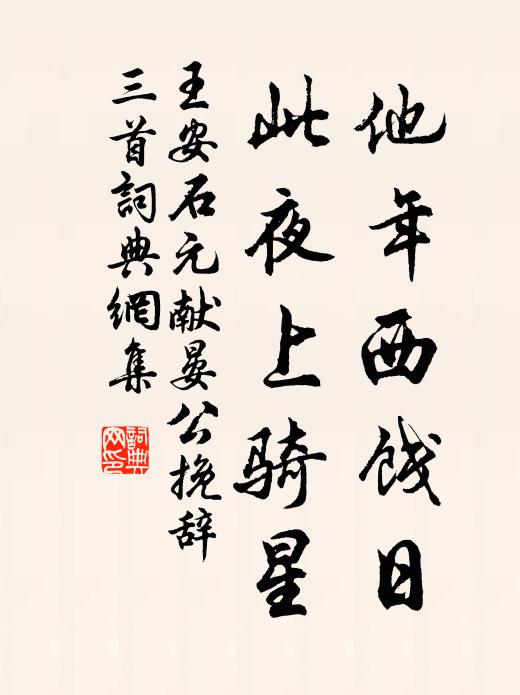 他年西饯日
此夜上骑星
王安石元献晏公挽辞
三首詞典網集
詞典
网印